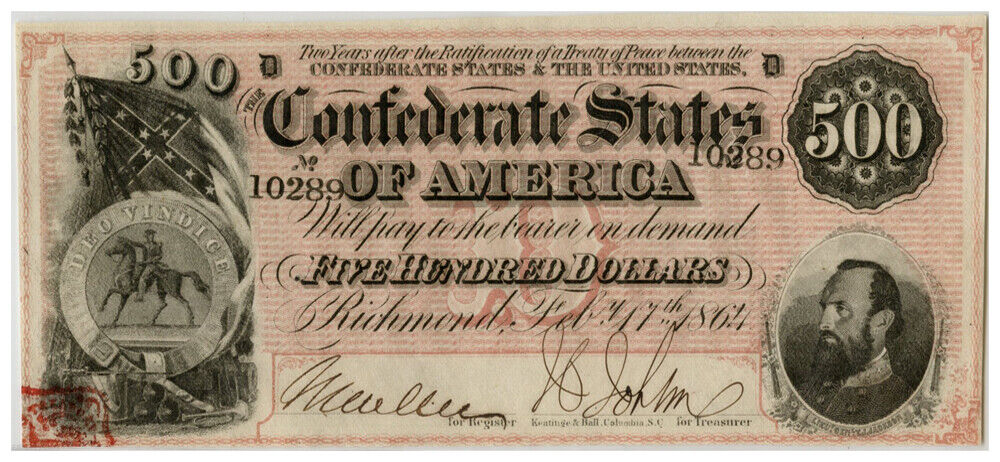 500
D
Two Years after the Ratification of a Treaty of Peace between the
CONFEDERATE STATES & THE UNITED STATES,
D
THE
Confederate States
500
No
10289
10289
OF AMERICA
Will pay to the bearer on demand
DEO VINDICE
FIVE HUNDRED DOLLARS
Richmond, Feby. 17th 1864
for Register
Keatinge & Ball, Columbia, S.C.
for Treasurer